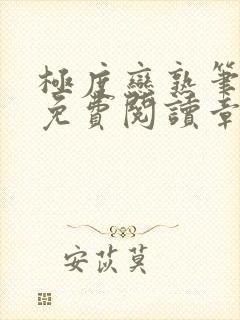 極度戀熟筆
免費閱讀章
安苡莫